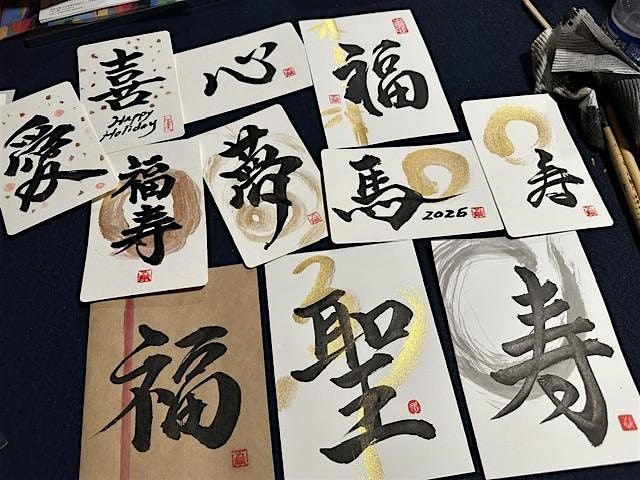 喜
Happy
Holiday
心
福
愛
福寿
夢
馬
2026
寿
福
聖
寿